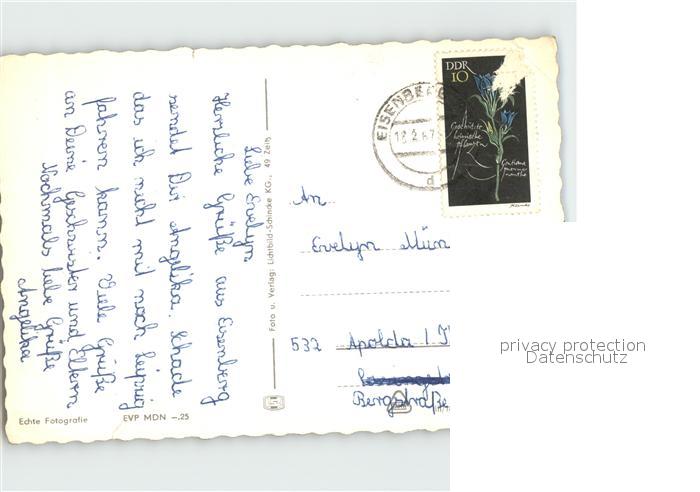 Liebe Evelyn
Herzliche Grüße aus Eisenberg
sendet Dir Angelika. Schade
das ich nicht mit nach Leipzig
fahren kann. Viele Grüße
an Deine Geschwister und Eltern
Nochmals liebe Grüße
Angelika
Echte Fotografie
EVP MDN —.25
Foto u. Verlag: Lichtbild-Schincke KG., 49 Zeitz
EISENBERG
DDR
10
Geschützte
heimische
Pflanzen
An
Evelyn Mün
532 Apolda / T
Bergstraße
privacy protection
Datenschutz